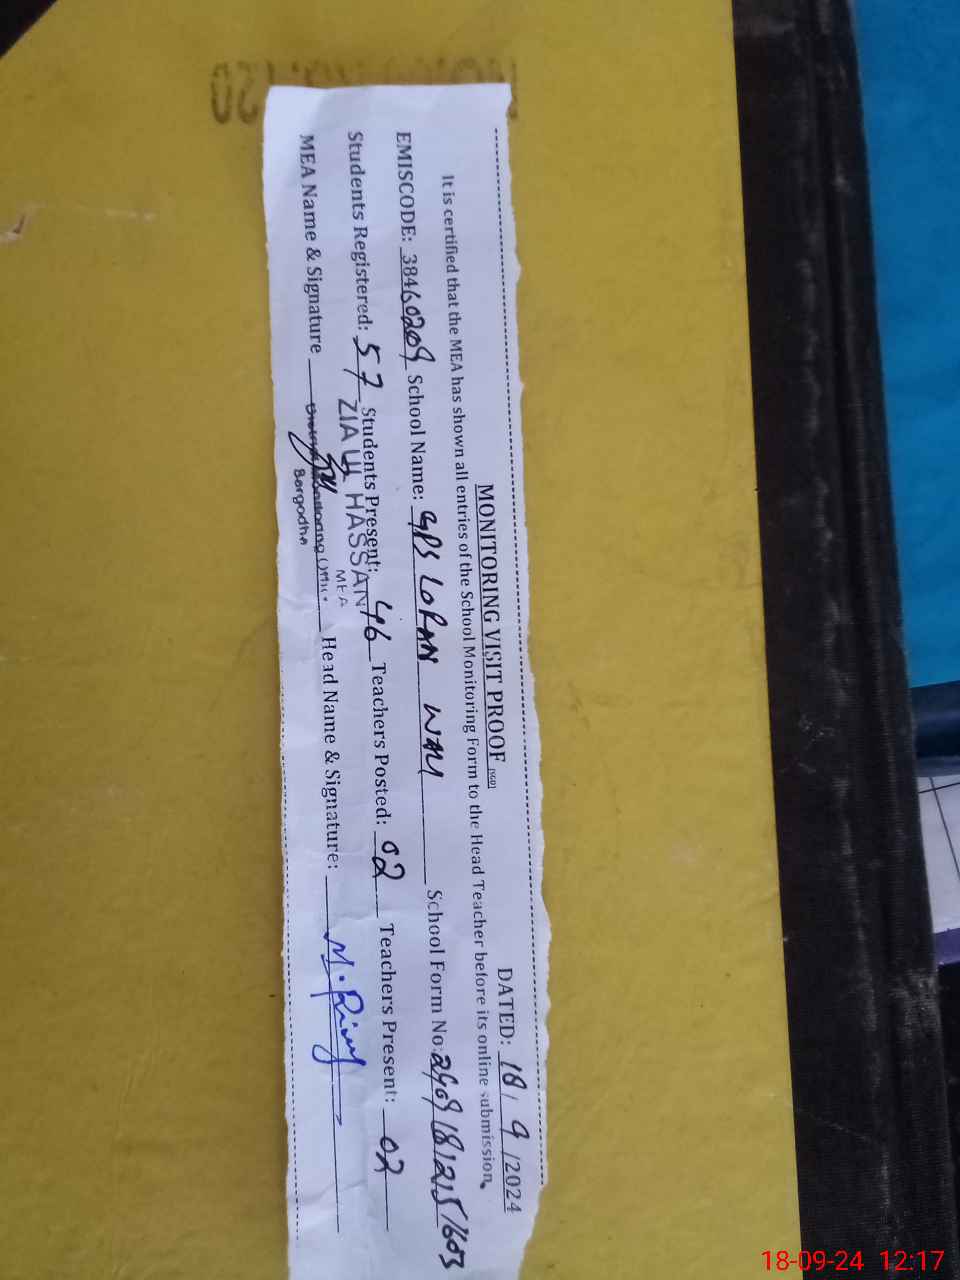 MONITORING VISIT PROOF (SGD)
DATED: 18/9/2024
It is certified that the MEA has shown all entries of the School Monitoring Form to the Head Teacher before its online submission.
EMISCODE: 38460209 School Name: GPS LORAN WALI School Form No:
Students Registered: 57 Students Present: 46 Teachers Posted: 02 Teachers Present: 02
ZIA UL HASSAN
MEA
MEA Name & Signature Head Name & Signature:
District Monitoring Office
Sargodha
18-09-24 12:17